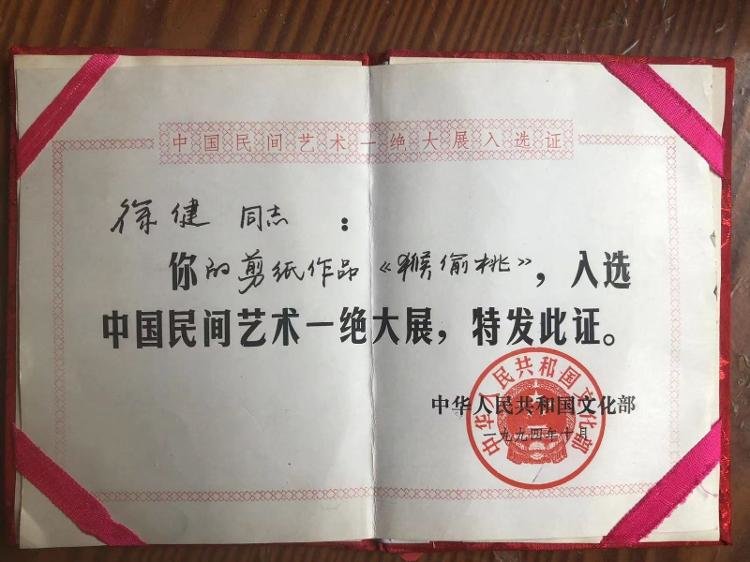 中国民间艺术一绝大展入选证
徐健 同志：
你的剪纸作品《猴偷桃》，入选
中国民间艺术一绝大展，特发此证。
中华人民共和国文化部
一九九四年十月
中华人民共和国文化部